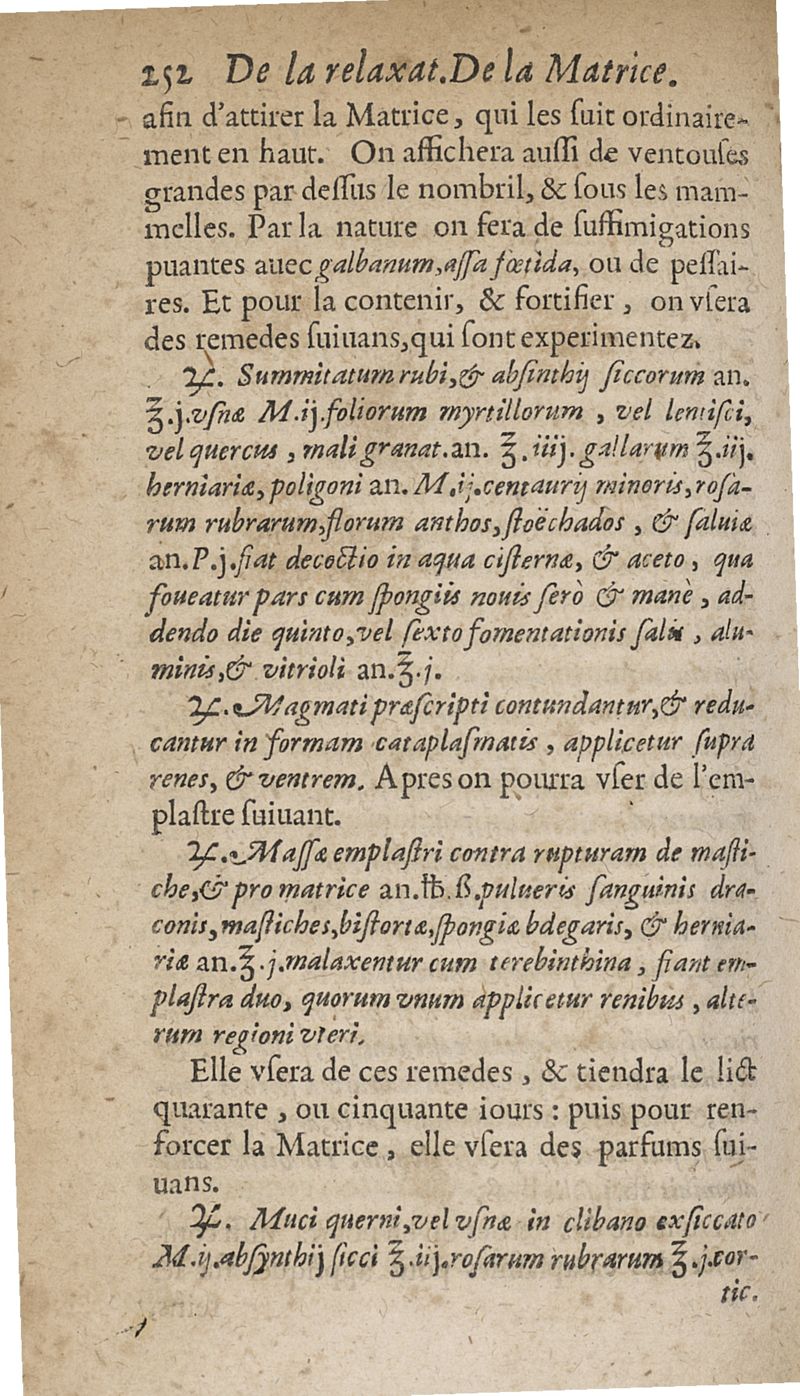 252 De la relaxat. De la Matrice.
afin d'attirer la Matrice, qui les ſuit ordinaire-
ment en haut. On affichera auſſi de ventouſes
grandes par deſſus le nombril, & ſous les mam-
melles. Par la nature on fera de ſuffimigations
puantes auec galbanum, aſſa fœtida, ou de peſſai-
res. Et pour la contenir, & fortifier, on vſera
des remedes ſuiuans, qui ſont experimentez.
℞. Summitatum rubi, & abſinthij ſiccorum an.
℥.j. vſnæ M.ij. foliorum myrtillorum, vel lentiſci,
vel quercus, mali granat. an. ℥.iiij. gallarum ℥.iij.
herniariæ, poligoni an. M.ij. centaurij minoris, roſa-
rum rubrarum, florum anthos, ſtoëchados, & ſaluiæ
an. P.j. fiat decoctio in aqua ciſternæ, & aceto, qua
foueatur pars cum ſpongiis nouis ſerò & manè, ad-
dendo die quinto, vel ſexto fomentationis ſalis, alu-
minis, & vitrioli an. ℥.j.
℞. Magmati præſcripti contundantur, & redu-
cantur in formam cataplaſmatis, applicetur ſupra
renes, & ventrem. Apres on pourra vſer de l'em-
plaſtre ſuiuant.
℞. Maſſæ emplaſtri contra rupturam de maſti-
che, & pro matrice an. ℔. ß. pulueris ſanguinis dra-
conis, maſtiches, biſtortæ, ſpongiæ bdegaris, & hernia-
riæ an. ℥.j. malaxentur cum terebinthina, fiant em-
plaſtra duo, quorum vnum applicetur renibus, alte-
rum regioni vteri.
Elle vſera de ces remedes, & tiendra le lict
quarante, ou cinquante iours : puis pour ren-
forcer la Matrice, elle vſera des parfums ſui-
uans.
℞. Muci querni, vel vſnæ in clibano exſiccato
M.ij. abſynthij ſicci ℥.iij. roſarum rubrarum ℥.j. cor-
tic.